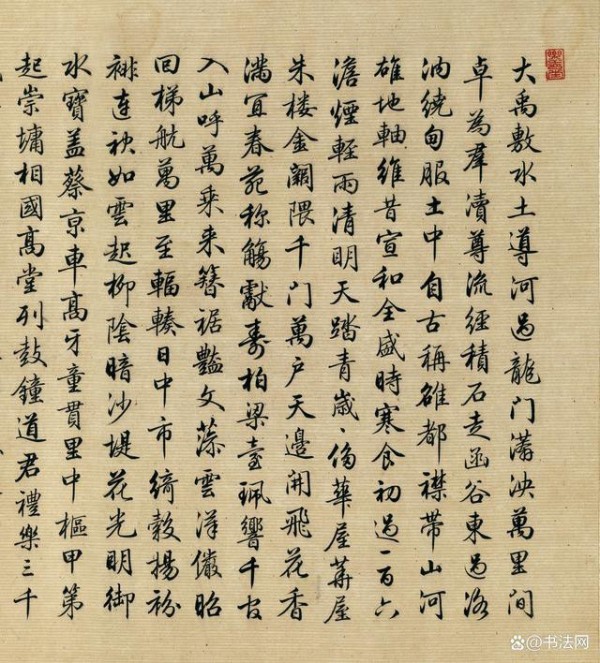 大禹敷水土導河過龍門瀟泱萬里間
卓為羣瀆尊流經積石走函谷東過洛
汭繞甸服土中自古稱雄都襟帶山河
雄地軸維昔宣和全盛時寒食初過一百六
澹煙輕雨清明天踏青歲丶侈華屋華屋
朱楼金闕隈千門萬户天邊開飛花香
滿宜春苑称觴獻壽柏梁臺珮響千官
入山呼萬乘来簪裾豔文藻雲漢儼昭
回梯航萬里至輻輳日中市綺縠揚紛
裶連袂如雲起柳陰暗沙堤花光明御
水寶盖蔡京車髙牙童貫里中樞甲第
起崇墉相國髙堂列鼓鐘道君禮樂三千
@书法网